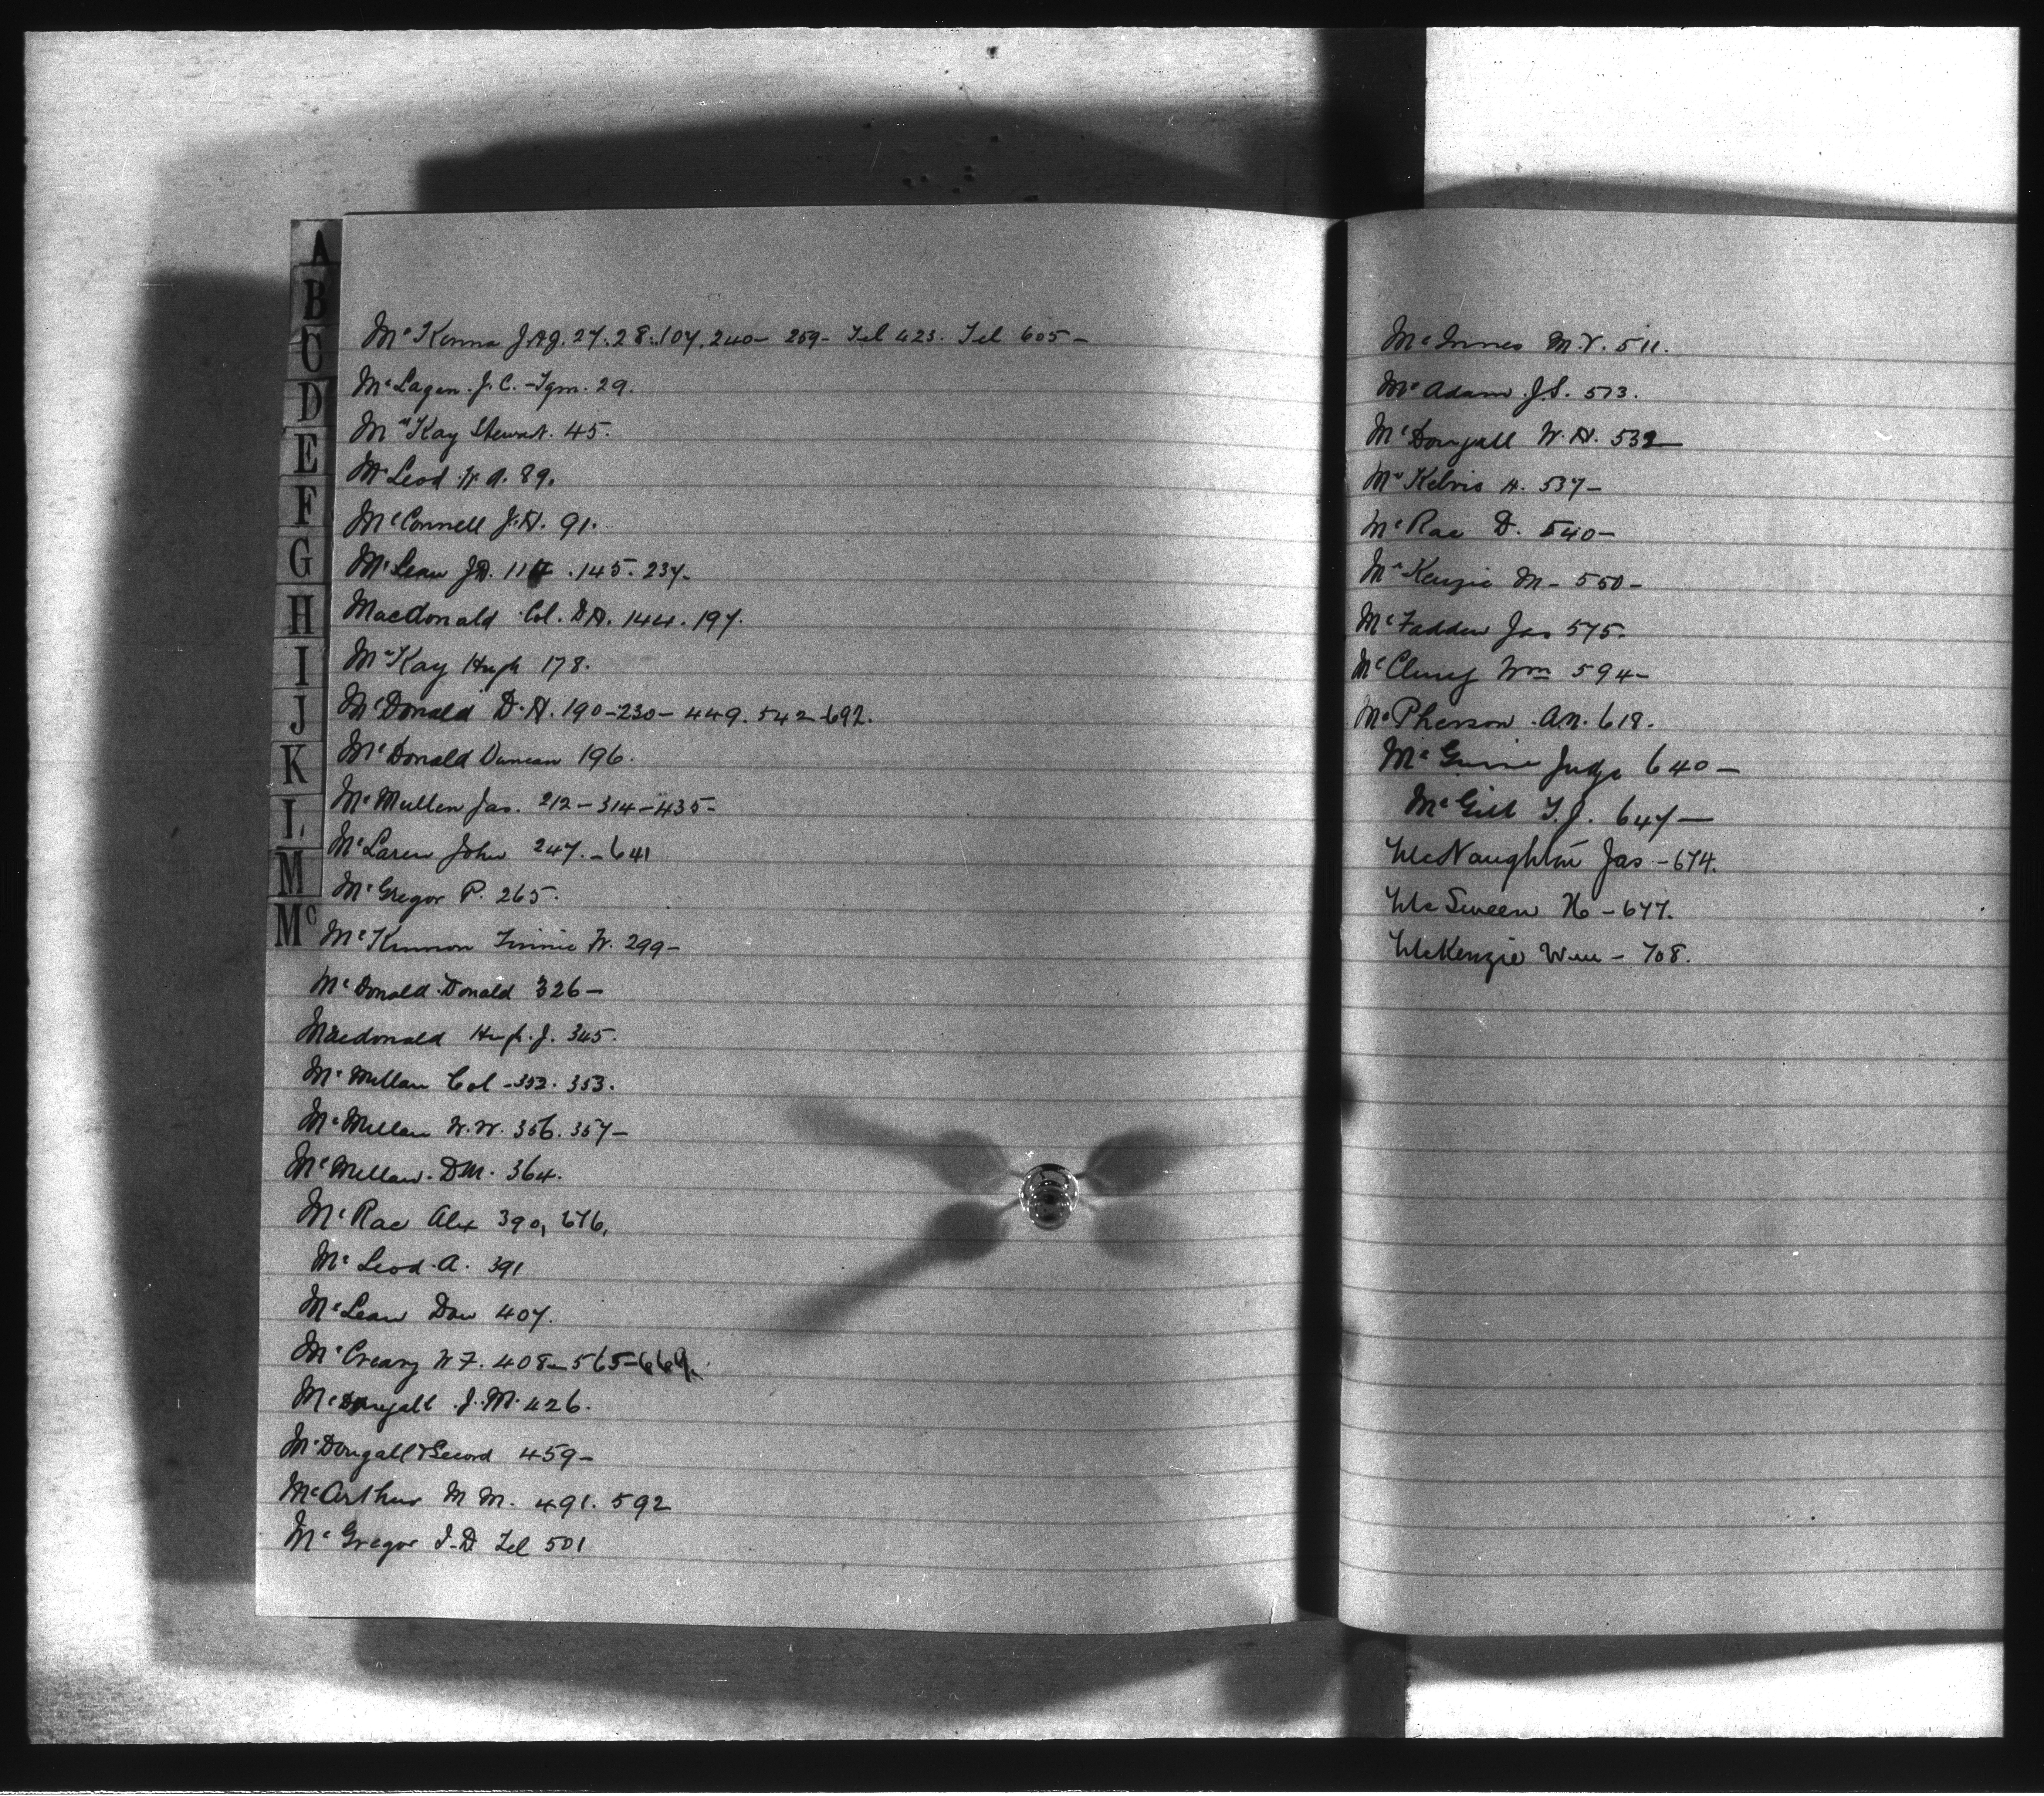 A
B
C
D
E
F
G
H
I
J
K
L
M
Mc
McKenna J.A.J. 27.28.107.240- 259- Tel 423. Tel 605-
McLagen. J.C. -Tgm. 29.
McKay Stewart. 45.
McLeod W.A. 89.
McConnell J.H. 91.
McLean J.D. 117.145.237.
Macdonald Col. D.H. 144.197.
McKay Hugh 178.
McDonald D.H. 190-230-449.542-692.
McDonald Duncan 196.
McMullen Jas. 212-314-435-
McLaren John 247.-641
McGregor P. 265.
McKinnon W. 299-
McDonald Donald 326-
Macdonald Hugh.J. 345.
McMillan Col -352. 353.
McMillan W.W. 356.357-
McMillan. D.M. 364.
McRae Alex 390, 676,
McLeod.A. 391
McLean Dan 407.
McCreary W.F. 408-565-669.
McDougall J.M. 426.
McDougall & Secord 459-
McArthur M M. 491. 592
McGregor J.D. Tel 501
McInnes M.V. 511.
McAdam J.S. 573.
McDougall W.H. 532-
McKelvie H. 537-
McRae D. 540-
McKenzie M- 550-
McFadden Jas 575-
Wm 594-
McPherson. A.N. 618.
McGuire Judge 640-
McGill T.J. 647-
McNaughton Jas -674.
McSween H -677.
McKenzie Wm - 708.